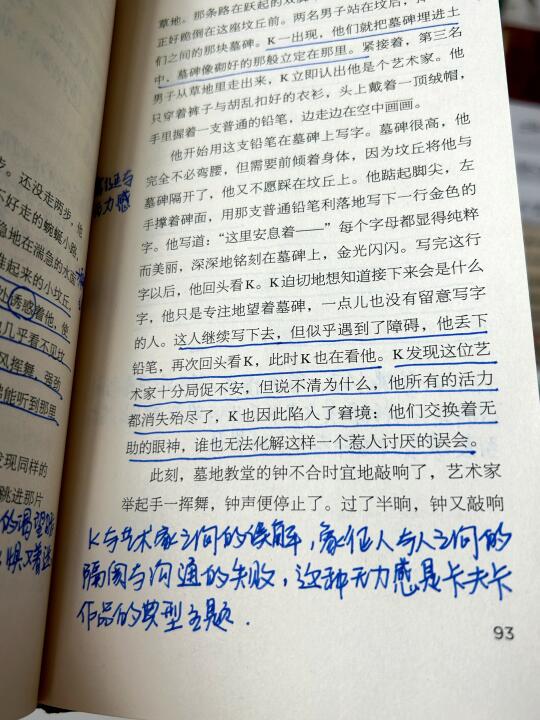 草地。那条路在跃起的双
正好跪倒在这座坟丘前。两名男子站在坟后,
们之间的那块墓碑。K一出现,他们就把墓碑埋进土
中,墓碑像砌好的那般立定在那里。紧接着,第三名
男子从草地里走出来,K立即认出他是个艺术家。他
只穿着裤子与胡乱扣好的衣衫,头上戴着一顶绒帽,
手里握着一支普通的铅笔,边走边在空中画画。
他开始用这支铅笔在墓碑上写字。墓碑很高,他
完全不必弯腰,但需要前倾着身体,因为坟丘将他与
墓碑隔开了,他又不愿踩在坟丘上。他踮起脚尖,左
手撑着碑面,用那支普通铅笔利落地写下一行金色的
字。他写道:“这里安息着——”每个字母都显得纯粹
而美丽,深深地铭刻在墓碑上,金光闪闪。写完这行
字以后,他回头看K。K迫切地想知道接下来会是什么
字,他只是专注地望着墓碑,一点儿也没有留意写字
的人。这人继续写下去,但似乎遇到了障碍,他丢下
铅笔,再次回头看K,此时K也在看他。K发现这位艺
术家十分局促不安,但说不清为什么,他所有的活力
都消失殆尽了,K也因此陷入了窘境:他们交换着无
助的眼神,谁也无法化解这样一个惹人讨厌的误会。
此刻,墓地教堂的钟不合时宜地敲响了,艺术家
举起手一挥舞,钟声便停止了。过了半晌,钟又敲响
K与艺术家之间的误解,象征人与人之间的
隔阂与沟通的失败,这种无力感是卡夫卡
作品的典型主题.
93
步。还没走两步,他
不好走的蜿蜒小路,
急地在湍急的水面
起来的小坟丘,
处诱惑着他,使
几乎看不见坟
风挥舞,强劲
能听到那里
发现同样的
跳进那片
的渴望
力感